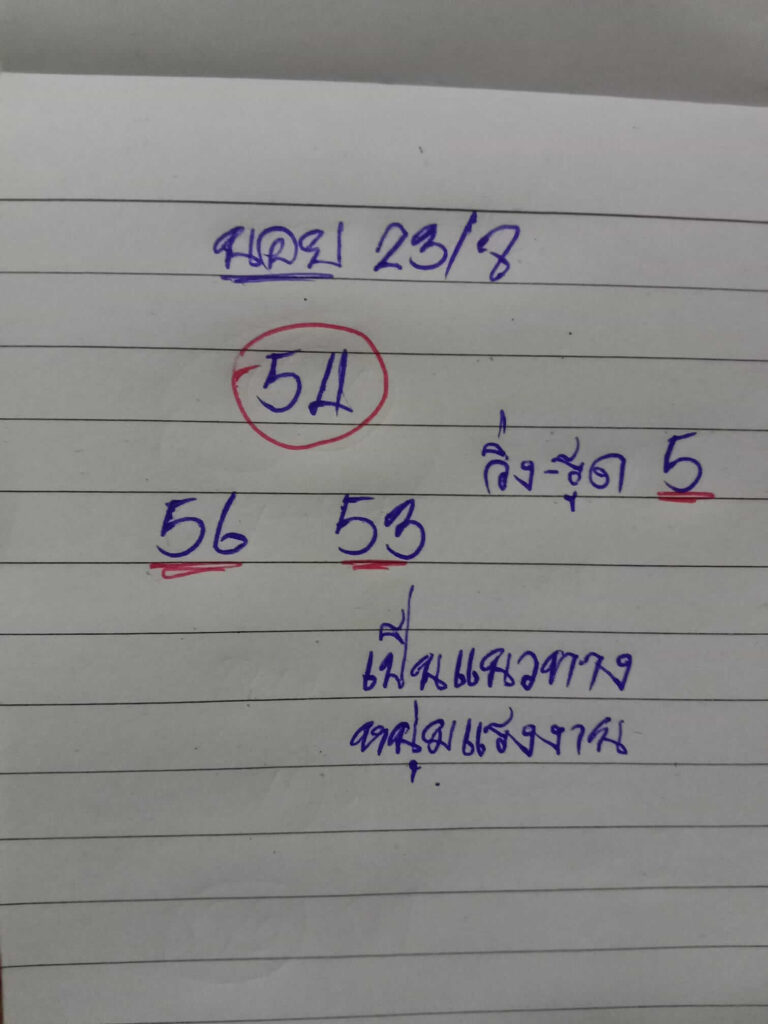 นอย 23/8
54
วิ่ง-รูด 5
56 53
เป็นแนวทาง
หนุ่มแรงงาน